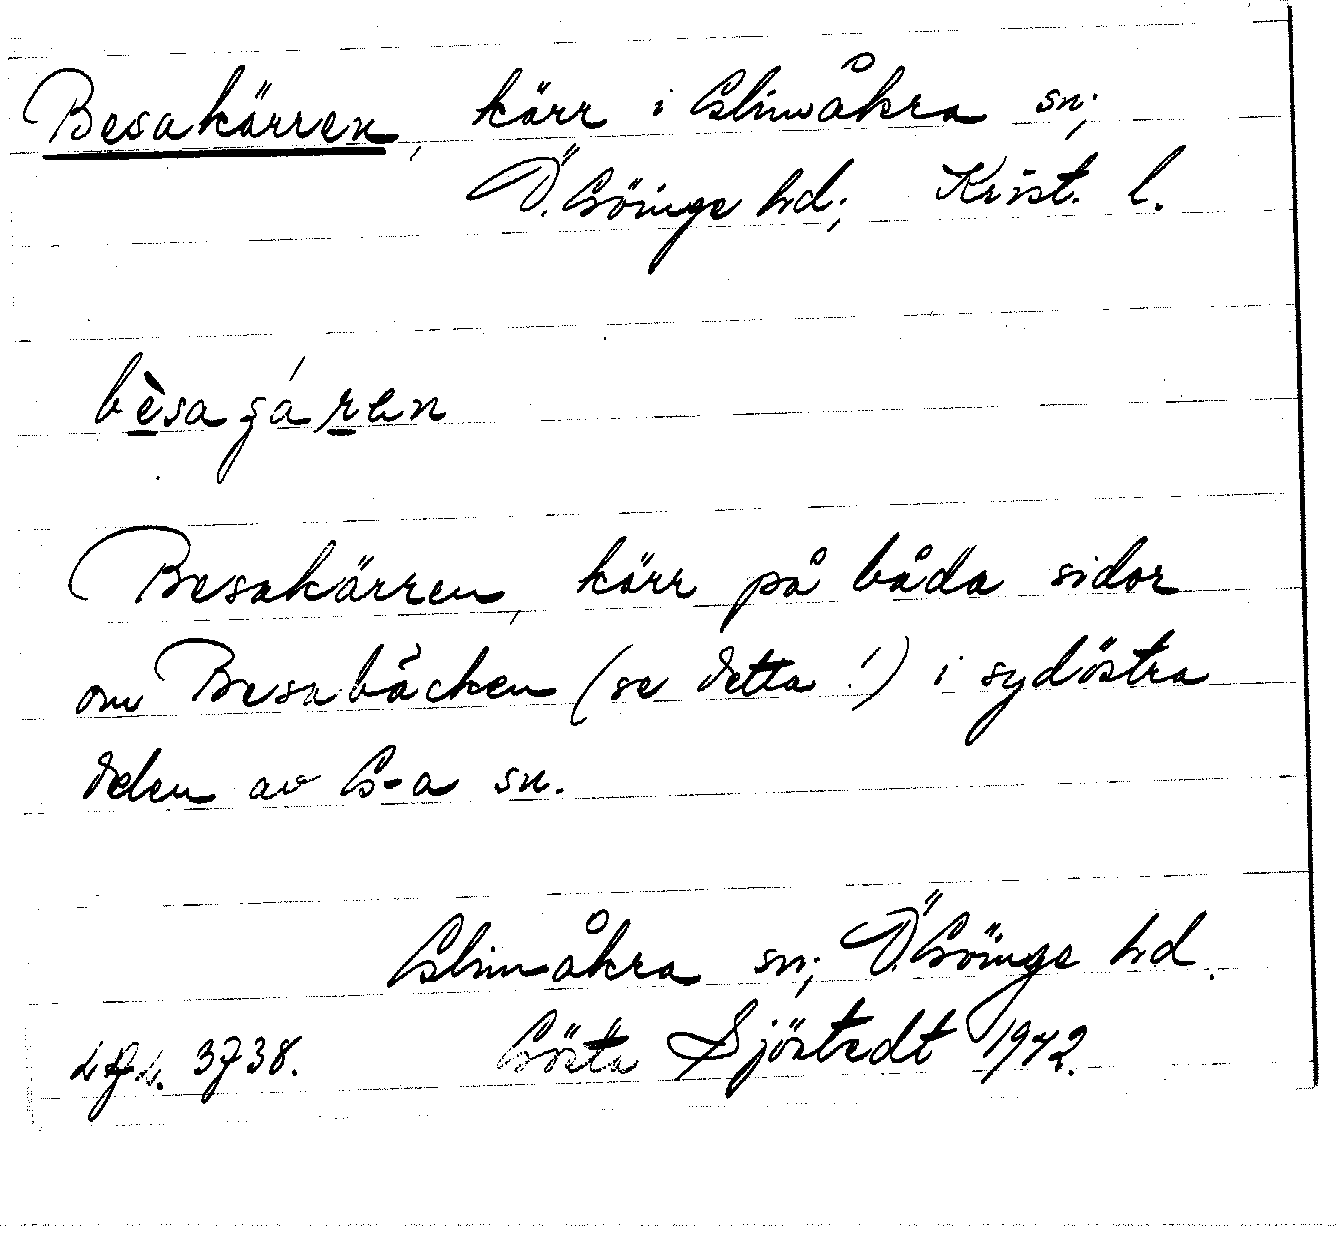 Besakärren, kärr i Glimåkra sn;
Ö. Göinge hd; Krist. l.
bèsagáren
Besakärren, kärr på båda sidor
om Besabäcken (se detta!) i sydöstra
delen av G-a sn.
Glimåkra sn; Ö. Göinge hd.
3738. Gösta Sjöstedt 1942.